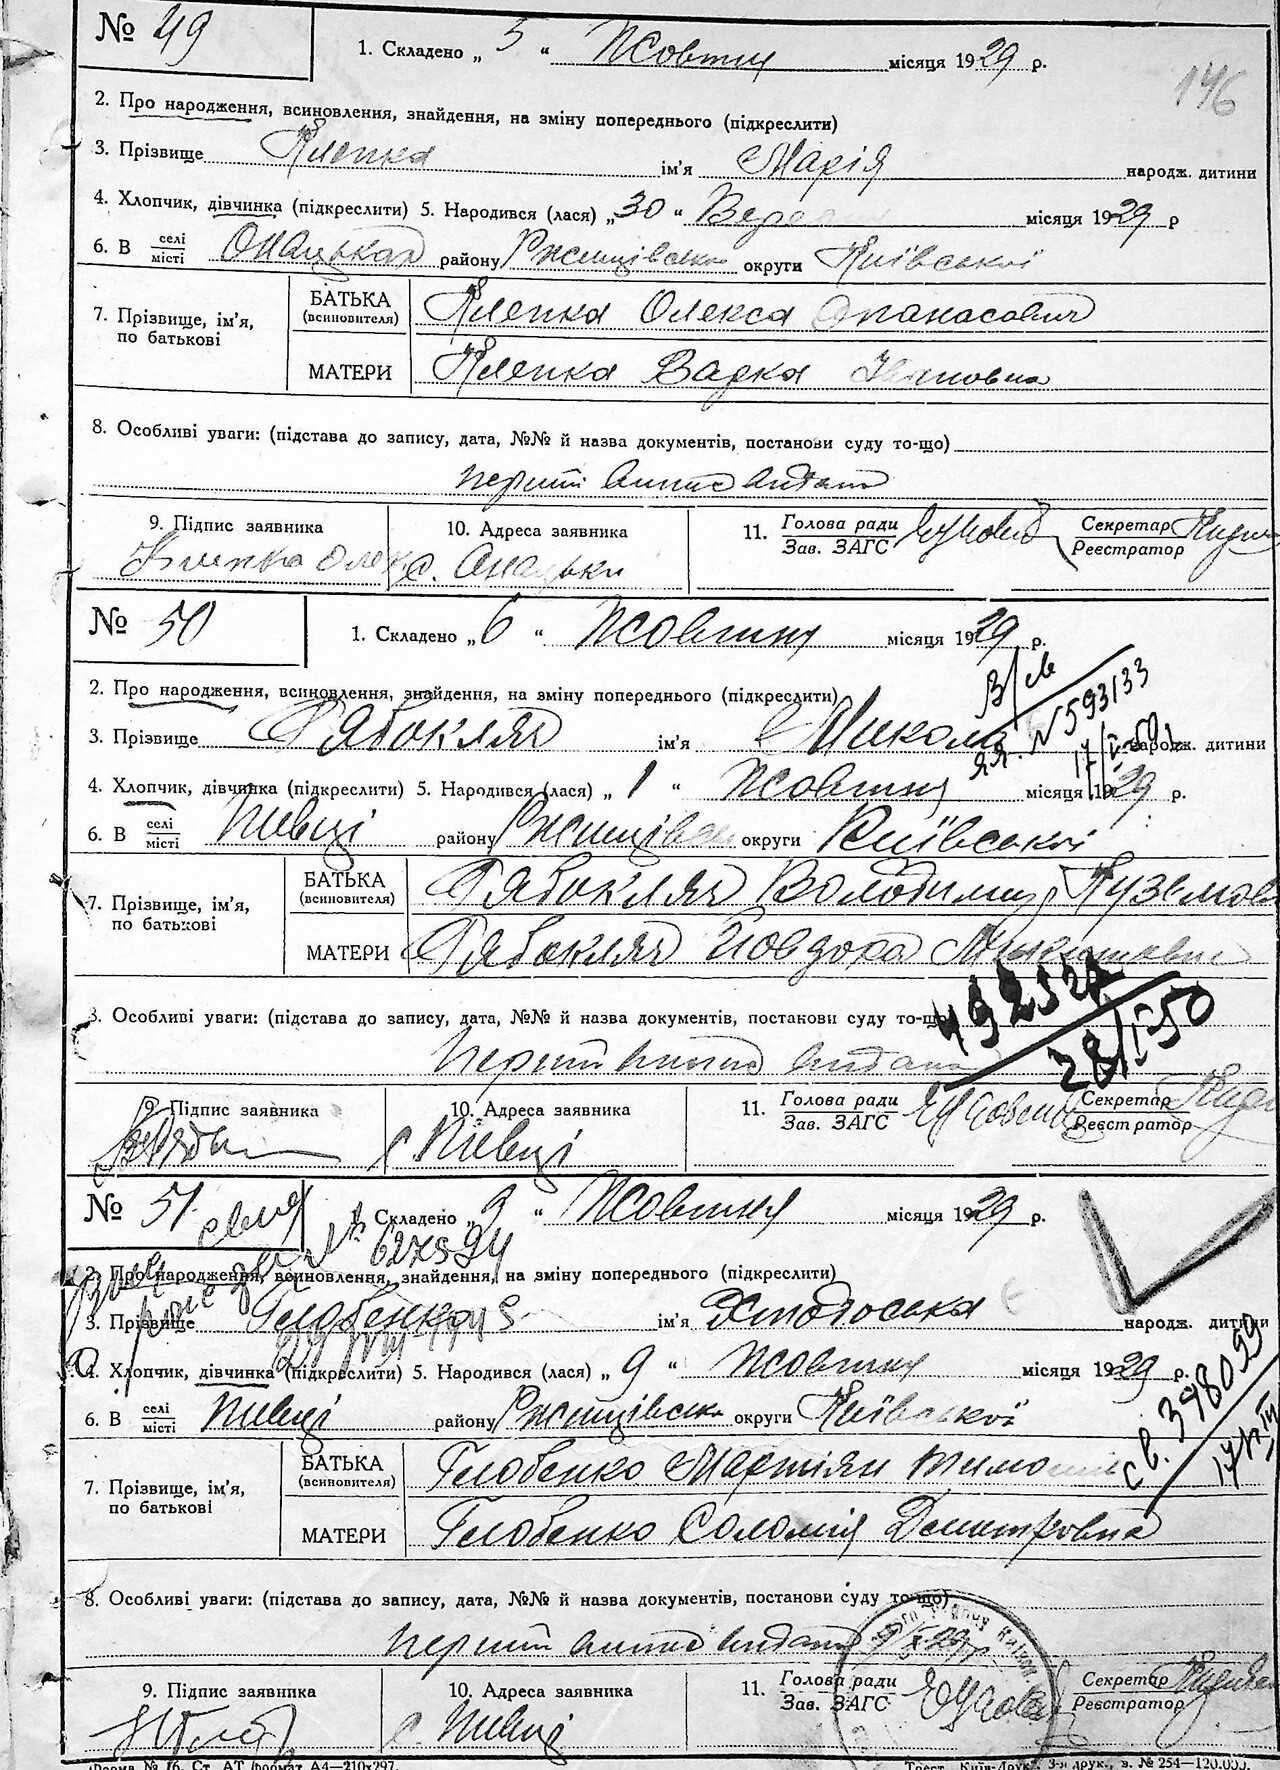 № 49
1. Складено „ 5 “ Жовтня місяця 1929 р.
146
2. Про народження, всиновлення, знайдення, на зміну попереднього (підкреслити)
3. Прізвище Клепка ім'я Марія народж. дитини
4. Хлопчик, дівчинка (підкреслити) 5. Народився (лася) „ 30 “ Вересня місяця 1929 р
6. В селі/місті Онацьках району Ржищівськ округи Київської
7. Прізвище, ім'я, по батькові
БАТЬКА (всиновителя) Клепка Олекса Опанасович
МАТЕРИ Клепка Варка Івановна
8. Особливі уваги: (підстава до запису, дата, №№ й назва документів, постанови суду то-що)
перший витяг видано
9. Підпис заявника 10. Адреса заявника 11. Голова ради Зав. ЗАГС Секретар Реєстратор
Клепка Олек с. Онацьки
№ 50
1. Складено „ 6 “ Жовтня місяця 1929 р.
2. Про народження, всиновлення, знайдення, на зміну попереднього (підкреслити)
N 593133
3. Прізвище Рябокляч ім'я Микола народж. дитини
4. Хлопчик, дівчинка (підкреслити) 5. Народився (лася) „ 1 “ Жовтня місяця 1929 р.
6. В селі/місті Пивці району Ржищівськ округи Київської
7. Прізвище, ім'я, по батькові
БАТЬКА (всиновителя) Рябокляч Володимир Кузьмов
МАТЕРИ Рябокляч Йовдоха
8. Особливі уваги: (підстава до запису, дата, №№ й назва документів, постанови суду то-що)
28/ІV 50
перший витяг видано
9. Підпис заявника 10. Адреса заявника 11. Голова ради Зав. ЗАГС Секретар Реєстратор
с Пивці
№ 51
1. Складено „ 9 “ Жовтня місяця 1929 р.
627594
2. Про народження, всиновлення, знайдення, на зміну попереднього (підкреслити)
3. Прізвище Глобенко ім'я Хтодоська народж. дитини
4. Хлопчик, дівчинка (підкреслити) 5. Народився (лася) „ 9 “ Жовтня місяця 1929 р.
6. В селі/місті Пивці району Ржищівськ округи Київської
св. 378099
7. Прізвище, ім'я, по батькові
БАТЬКА (всиновителя) Глобенко Мартіян Тимо
МАТЕРИ Глобенко Соломія Демитровна
8. Особливі уваги: (підстава до запису, дата, №№ й назва документів, постанови суду то-що)
перший витяг видано 9/X-29 р
9. Підпис заявника 10. Адреса заявника 11. Голова ради Зав. ЗАГС Секретар Реєстратор
с. Пивці
Форма № 16. Ст. АТ формат А4—210х297. Трест „Київ-Друк“, 3-я друк., в. № 254—120.000.